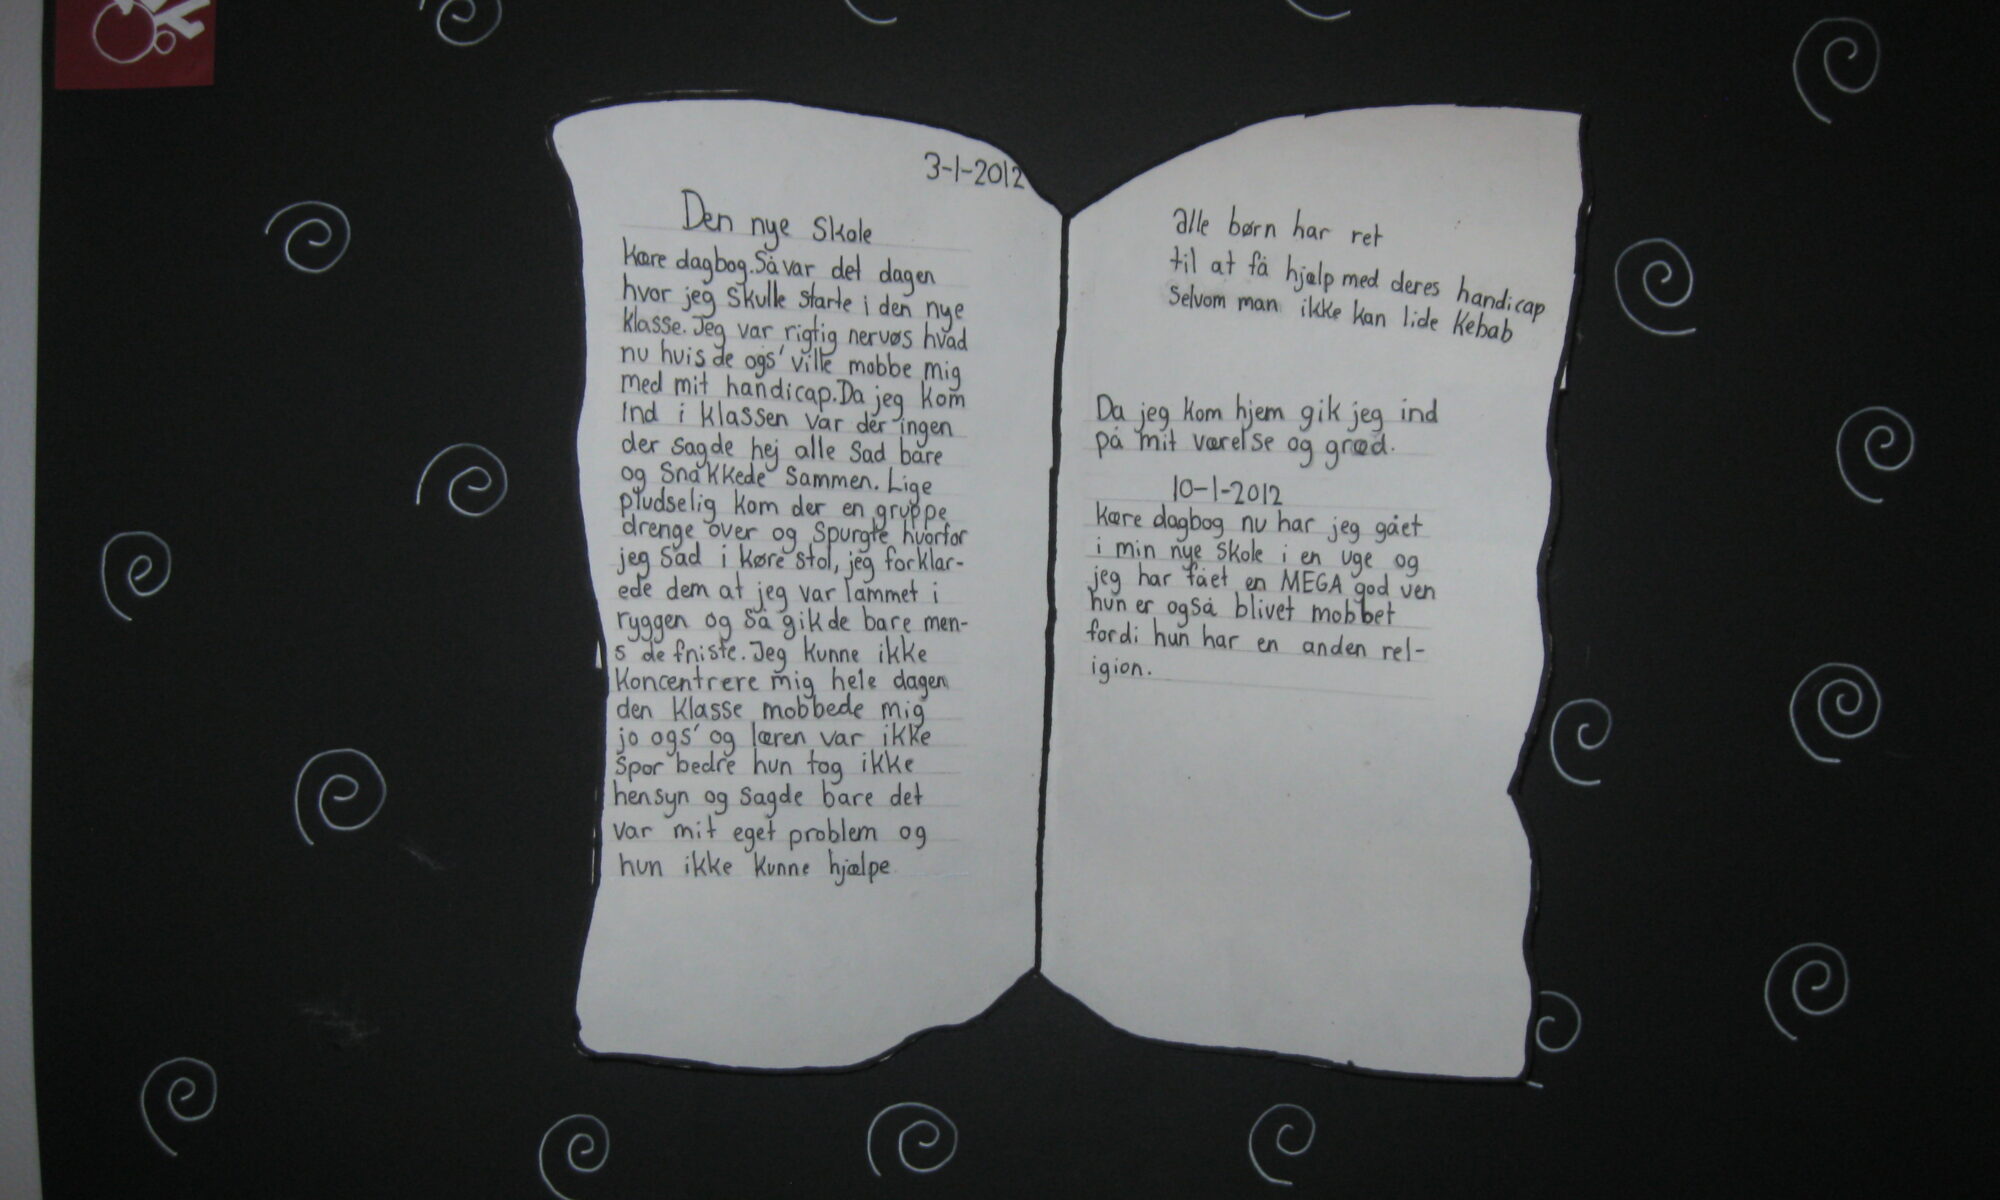 3-1-2012
Den nye Skole
Kære dagbog. Så var det dagen
hvor jeg skulle starte i den nye
klasse. Jeg var rigtig nervøs hvad
nu huis de ogs' ville mobbe mig
med mit handicap. Da jeg kom
ind i klassen var der ingen
der sagde hej alle sad bare
og snakkede sammen. Lige
pludselig kom der en gruppe
drenge over og spurgte hvorfor
jeg sad i køre stol, jeg forklar-
ede dem at jeg var lammet i
ryggen og så gik de bare men-
s de fniste. Jeg kunne ikke
koncentrere mig hele dagen
den klasse mobbede mig
jo ogs' og læren var ikke
spor bedre hun tog ikke
hensyn og sagde bare det
var mit eget problem og
hun ikke kunne hjælpe
alle børn har ret
til at få hjælp med deres handicap
selvom man ikke kan lide kebab
Da jeg kom hjem gik jeg ind
på mit værelse og græd.
10-1-2012
Kære dagbog nu har jeg gået
i min nye skole i en uge og
jeg har fået en MEGA god ven
hun er også blivet mobbet
fordi hun har en anden rel-
igion.